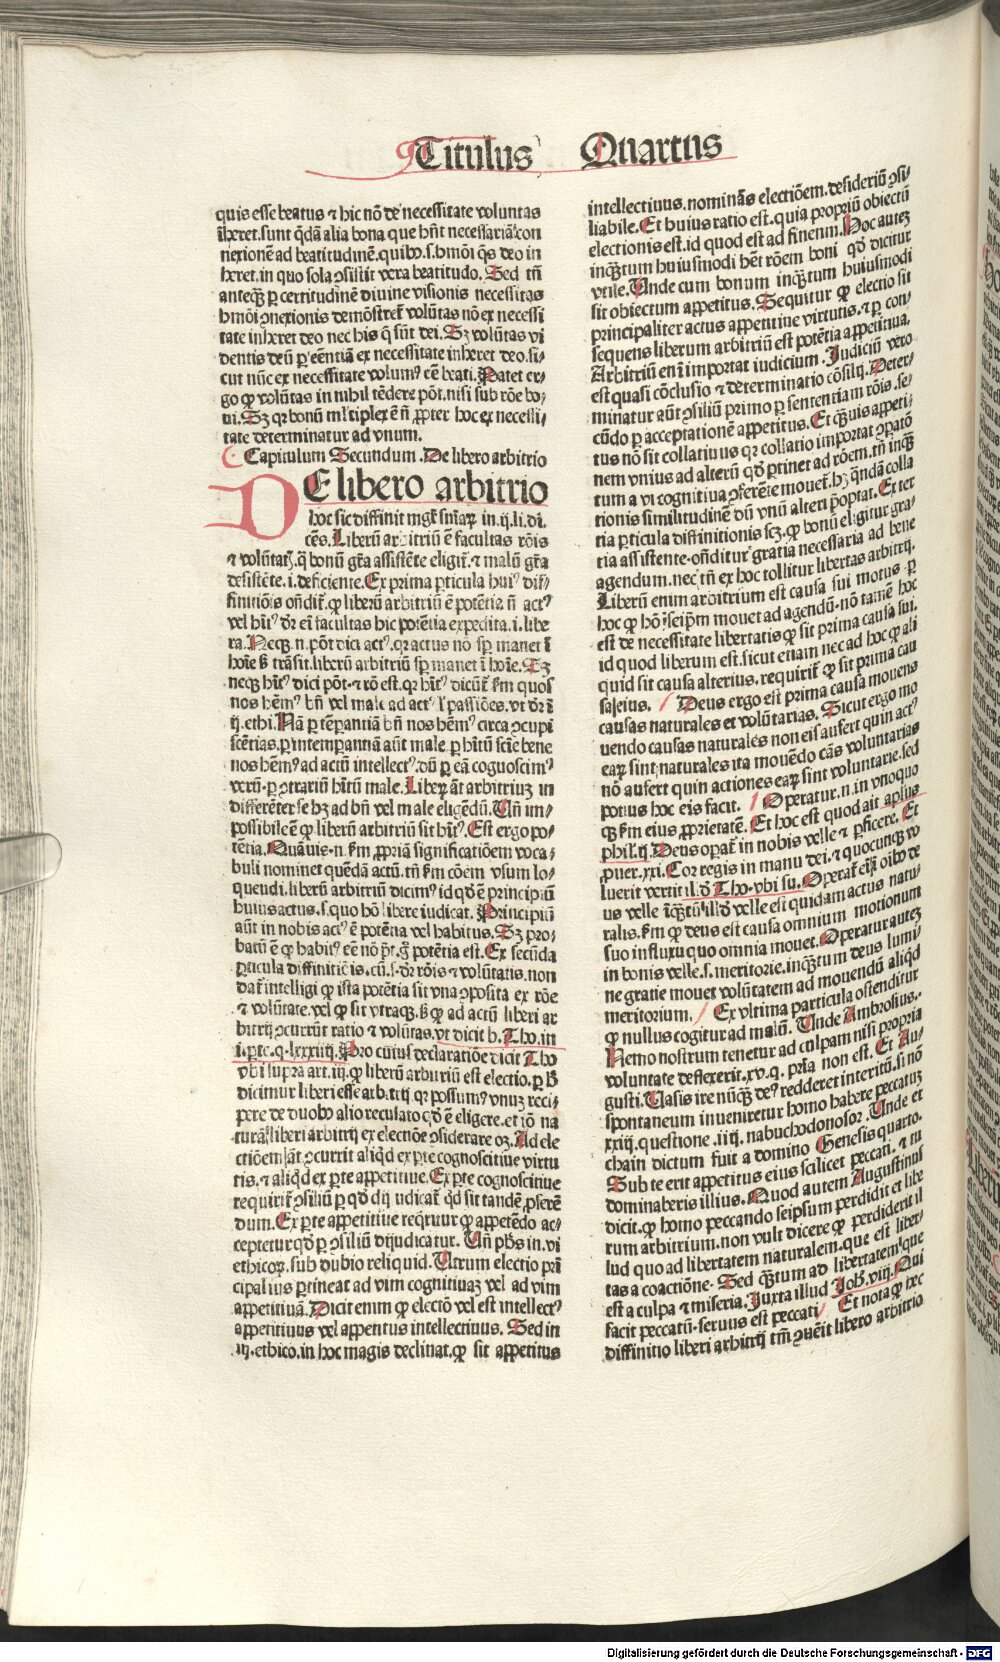 Titulus Quartus
quis esse beatus ⁊ hic nō de necessitate voluntas
īheret. sunt q̄dā alia bona que hn̄t necessariā con
nexionē ad beatitudinē. quibꝰ. s. hmōi q̄s deo in
heret. in quo sola ꝯsistit vera beatitudo. Sed tn̄
anteqꝫ per certitudinē diuine visionis necessitas
hmōi ꝯnexionis demōstret᷑ volūtas nō ex necessi
tate inheret deo nec his q̄ sūt dei. Sꝫ volūtas vi
dentis deū per eēntiā ex necessitate inheret deo. si-
cut nūc ex necessitate volumꝰ eē beati. Patet er-
go ꝙ volūtas in nihil tēdere pōt. nisi sub rōe bo-
ni. Sꝫ qr bonū mltiplex ē ñ ꝓpter hoc ex necessi-
tate determinatur ad vnum.
Capitulum Secundum. De libero arbitrio
DE libero arbitrio
hoc sic diffinit mgr̄ sniaꝝ in. ij. li. di.
Liberū arbitriū ē facultas rōis
⁊ volūtatꝭ. q̄ bonū grā assistēte eligit᷑. ⁊ malū grā
desistēte. i. deficiente. Ex prima ꝑticula huiꝰ dif-
finitiōis oñdit᷑. ꝙ liberū arbitriū ē potētia ñ actꝰ
vel hitꝰ dr̄ em̄ facultas hic potētia expedita. i. libe
ra. Necqꝫ. n. pōt dici actꝰ. qr actus nō sp̄ manet ī
hoīe sꝫ trāsit. liberū arbitriū sp̄ manet ī hoīe. Sꝫ
neqꝫ hitꝰ dici pōt. ⁊ rō est. qr hitꝰ dicūt᷑ fm quos
nos hēmꝰ bn̄ vel male ad actꝰ l̓ passiōes. vt dr̄ ī
ij. ethi. Nā per tēperantiā bn̄ nos hēmꝰ circa ꝯcupi
scētias. per intemperantiā aūt male. per hitū sciē bene
nos hēmꝰ ad actū intellectꝰ. dū per eā cognoscimꝰ
verū. per ꝯtrariū hitū male. Liberꝝ āt arbitriuꝫ in
differēter se hꝫ ad bn̄ vel male eligēdū. Vn̄ im-
possibile ē ꝙ liberū arbitriū sit hitꝰ. Est ergo po-
tētia. Quāuis. n. fm ꝓpriā significatiōem voca-
buli nominet quēdā actū. tn̄ fm cōem vsum lo-
quendi. liberū arbitriū dicimꝰ id qd̓ ē principiū
huius actus. s. quo hō libere iudicat. Principiū
aūt in nobis actꝰ ē potētia vel habitus. Sꝫ pro-
batū ē ꝙ habitꝰ eē nō pōt. g̊ potētia est. Ex secūda
ꝑticula diffinitiōis. cū. s. dr̄ rōis ⁊ volūtatis. non
dat᷑ intelligi ꝙ ista potētia sit vna ꝯposita ex rōe
⁊ volūtate. vel ꝙ sit vtraqꝫ. sꝫ ꝙ ad actū liberi ar
bitrij ꝯcurrūt ratio ⁊ volūtas. vt dicit b. Tho. in
i. parte. q. lxxxiiij. Pro cuius declaratiōe dicit Tho
vbi supra art. iij. ꝙ liberū arbitriū est electio. per hͦ
dicimur liberi esse arbitrij qr possumꝰ vnuꝫ reci-
pere de duobꝰ alio recusato qd̓ ē eligere. et iō na
turā liberi arbitrij ex electiōe ꝯsiderare oꝫ. Ad ele
ctiōem āt ꝯcurrit aliqd̓ ex parte cognoscitiue virtu
tis. ⁊ aliqd̓ ex parte appetitiue. Ex parte cognoscitiue
requirit᷑ ꝯsiliū per qd̓ dijudicat᷑ qd̓ sit tandē preferē
dum. Ex parte appetitiue reqritur ꝙ appetēdo ac-
ceptetur qd̓ per ꝯsiliū dijudicatur. Vn̄ phs in. vi
ethicoꝝ. sub dubio reliquid. Vtrum electio pri
cipalius pertineat ad vim cognitiuaꝫ vel ad vim
appetitiuā. Dicit enim ꝙ electio vel est intellectꝰ
appetitiuus vel appetitus intellectiuus. Sed in
iij. ethico. in hoc magis declinat. ꝙ sit appetitus
intellectiuus. nominās electiōem. desideriū ꝯsi-
liabile. Et huius ratio est. quia propriū obiectū
electionis est. id quod est ad finem. Hoc autez
inqꝫtum huiusmodi het rōem boni qd̓ dicitur
vtile. Unde cum bonum inqꝫtum huiusmodi
sit obiectum appetitus. Sequitur ꝙ electio sit
principaliter actus appetitiue virtutis. ⁊ per con-
sequens liberum arbitrium est potētia appetitiua.
Arbitriū eni importat iudicium. Judiciū vero
est quasi cōclusio ⁊ determinatio cōsilij. Deter-
minatur aūt ꝯsiliū primo per sententiam rōis. se-
cūdo per acceptationē appetitus. Et qꝫuis appeti-
tus nō sit collatiuus qr collatio importat ꝯparatō
nem vnius ad alterū qd̓ pertinet ad rōem. tn̄ inqꝫ
tum a vi cognitiua ꝯferēte mouet᷑. hꝫ q̄ndā colla
tionis similitudinē dū vnū alteri preoptat. Ex ter
tia particula diffinitionis scꝫ. ꝙ bonū eligitur gra-
tia assistente. oñditur gratia necessaria ad bene
agendum. nec tn̄ ex hoc tollitur libertas arbitrij.
Liberū enim arbitrium est causa sui motus. per
hoc ꝙ hō seipm mouet ad agendū. nō tamē hoc
est de necessitate libertatis ꝙ sit prima causa sui.
id quod liberum est. sicut etiam nec ad hoc ꝙ ali
quid sit causa alterius. requirit᷑ ꝙ sit prima cau
sa eius. Deus ergo est prima causa mouens
causas naturales et volūtarias. Sicut ergo mo
uendo causas naturales non eis aufert quin actꝰ
eaꝝ sint naturales ita mouēdo cās voluntarias
nō aufert quin actiones eaꝝ sint voluntarie. sed
potius hoc eis facit. Operatur. n. in vnoquo
qꝫ fm eius ꝓprietatē. Et hoc est quod ait aplus
phil. ij. Deus operat᷑ in nobis velle ⁊ perficere. Et
prouer. xxi. Cor regis in manu dei. ⁊ quocunqꝫ vo
luerit vertit illd̓ Tho. vbi su. Operat᷑ eīꝫ oibꝰ de
us velle īqꝫtū illd̓ velle est quidam actus natu
ralis. fm ꝙ deus est causa omnium motionum
suo influxu quo omnia mouet. Operatur autez
in bonis velle. s. meritorie. inqꝫtum deus lumi
ne gratie mouet volūtatem ad mouendū aliqd̓
meritorium. Ex vltima particula ostenditur
ꝙ nullus cogitur ad malū. Unde Ambrosius.
Nemo nostrum tenetur ad culpam nisi propria
voluntate deflexerit. xv. q. pria non est. Et Au-
gusti. Uasis ire nūqꝫ deꝰ redderet interitū. si nō
spontaneum inueniretur homo habere peccatuꝫ
xxiij. questione. iiij. nabuchodonosor. Unde et
chain dictum fuit a domino Genesis quarto.
Sub te erit appetitus eius scilicet peccati. ⁊ tu
dominaberis illius. Quod autem Augustinus
dicit. ꝙ homo peccando seipsum perdidit et libe
rum arbitrium. non vult dicere ꝙ perdiderit il
lud quo ad libertatem naturalem. que est liber-
tas a coactiōne. Sed qꝫtum ad libertatem que
est a culpa ⁊ miseria. Juxta illud Joh. viij. Qui
facit peccatū. seruus est peccati. Et nota ꝙ hec
diffinitio liberi arbitrij tm̄ ꝯuēit libero arbitrio
Digitalisierung gefördert durch die Deutsche Forschungsgemeinschaft - DFG